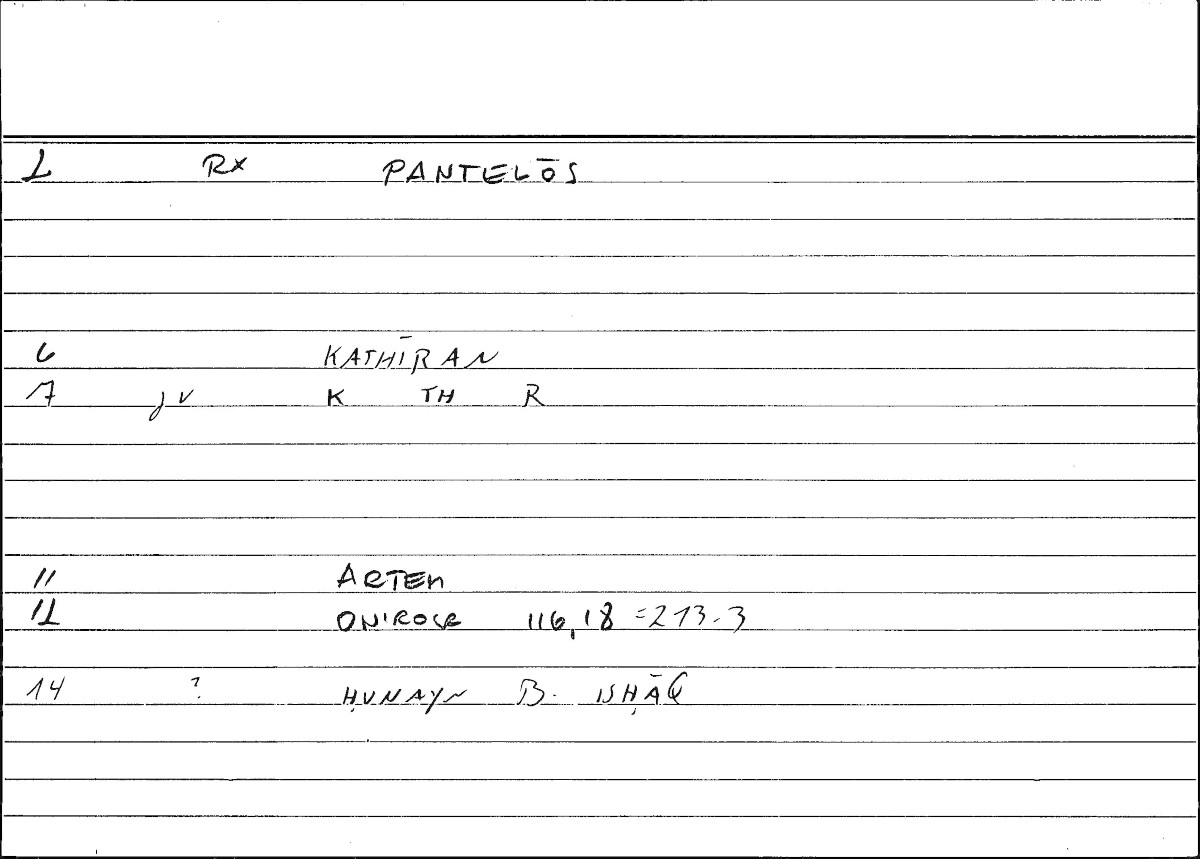 2 RX PANTELŌS
6 KATHĪRAN
7 jv K TH R
11 ARTEM
12 ONIROCR 116,18 = 213.3
14 ? ḤUNAYN B. ISḤĀQ